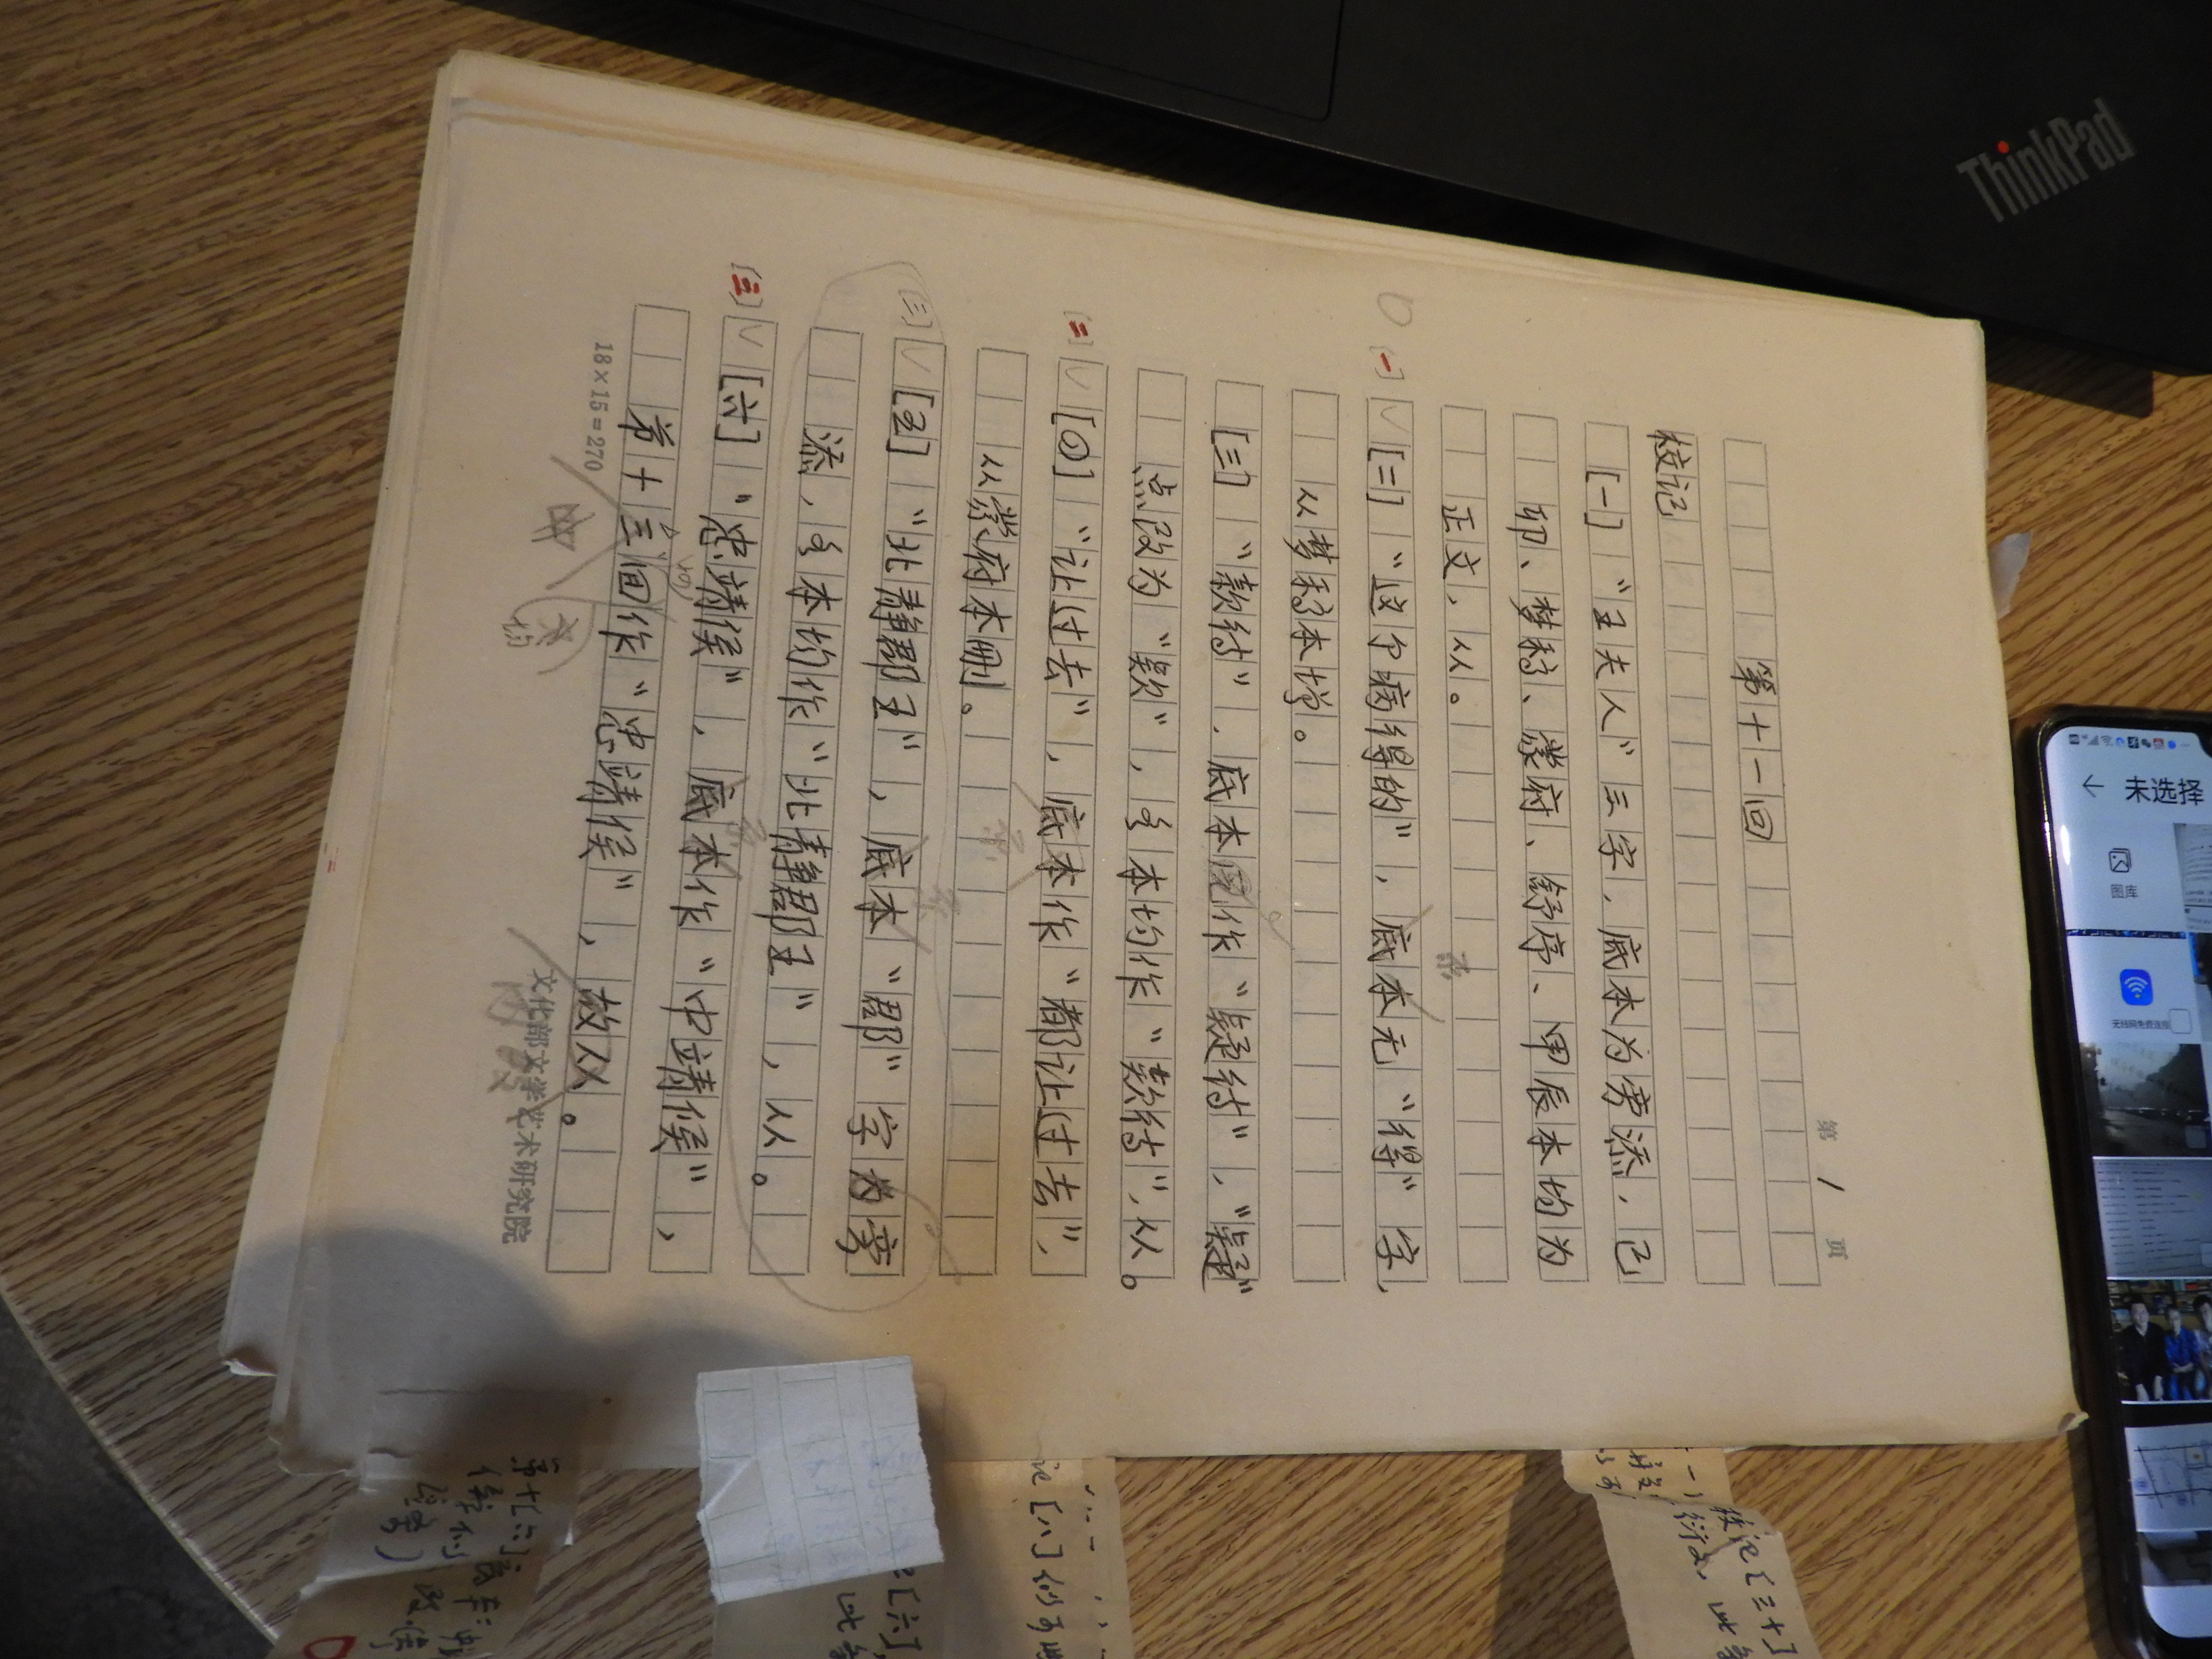 第 1 页
第十一回
校记
[一] “王夫人”三字，底本为旁添，己
卯、梦稿、蒙府、舒序、甲辰本均为
正文，从。
[二] “这个病得的”，底本无“得”字，
从梦稿本增。
[三] “款待”，底本原作“疑待”，“疑”
点改为“款”，各本均作“款待”，从。
[四] “让过去”，底本作“都让过去”，
从蒙府本删。
[五] “北静郡王”，底本“郡”字为旁
添，各本均作“北静郡王”，从。
[六] “忠靖侯”，底本作“中靖候”，
第十三回作“忠靖侯”，故从。
18×15=270
文化部文学艺术研究院
[一]
[二]
[三]
[三]
ThinkPad
未选择
图库
校记[三十]
衍文，此
记[八]仍可
[六]
此